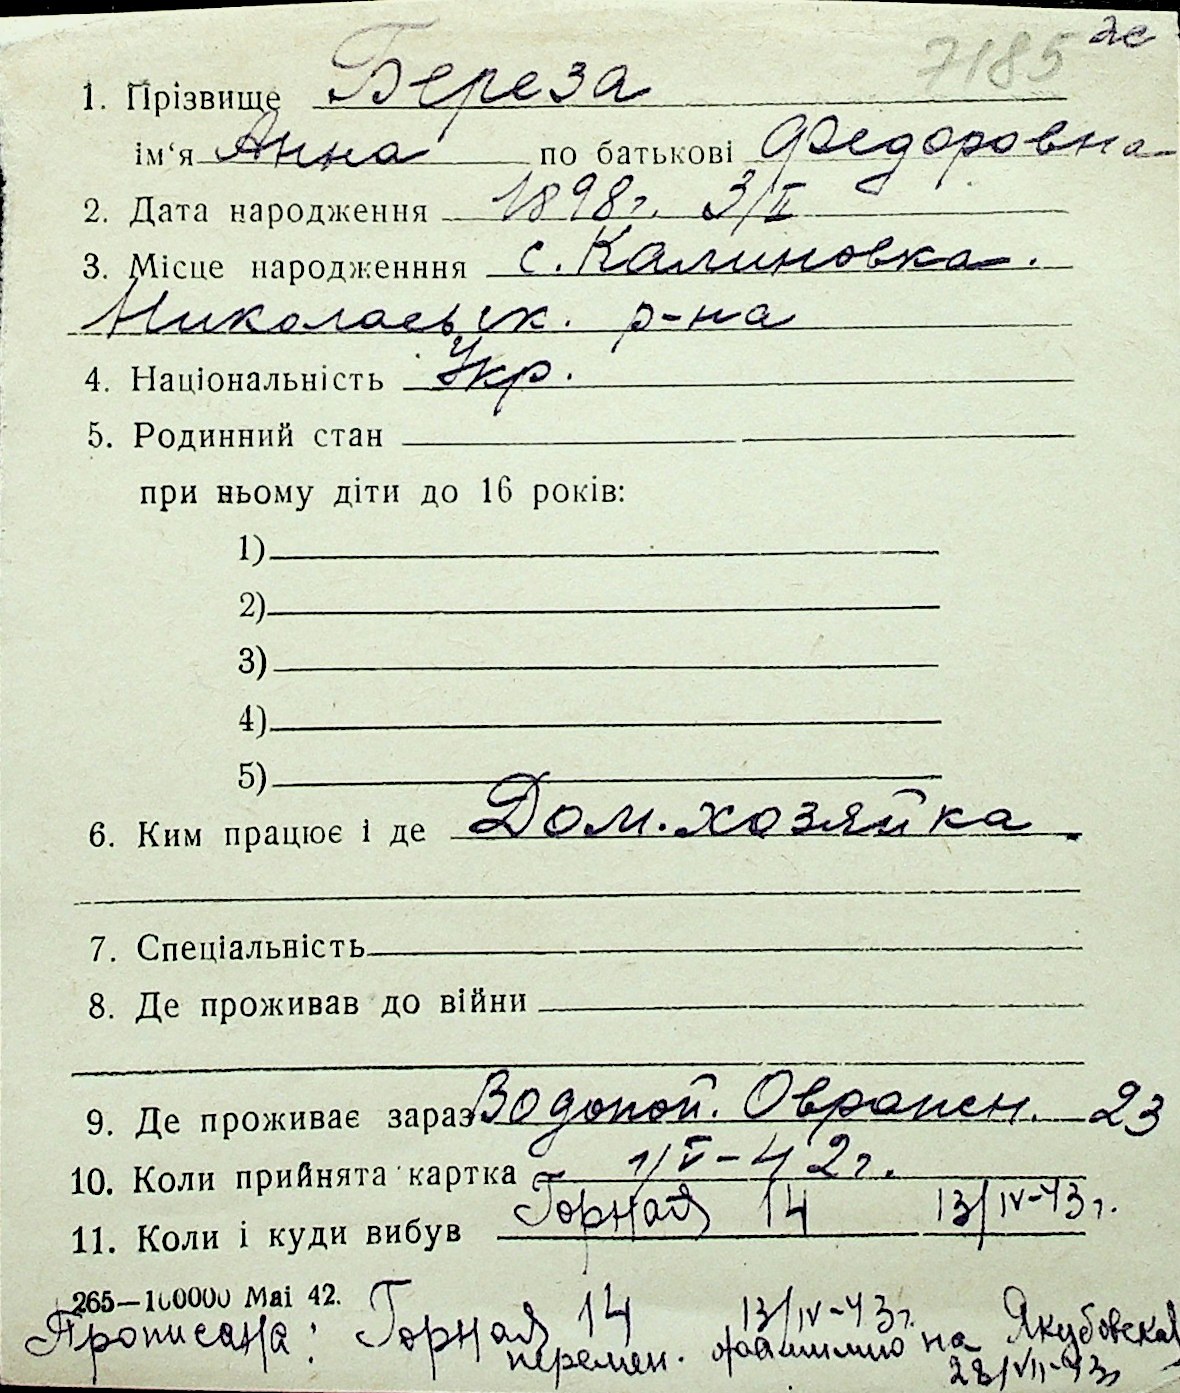 7185 же
1. Прізвище Береза
ім‘я Анна по батькові Федоровна
2. Дата народження 1898г. 3/II
3. Місце народженння с. Калиновка.
Николаевск. р-на
4. Національність Укр.
5. Родинний стан
при ньому діти до 16 років:
1)
2)
3)
4)
5)
6. Ким працює і де Дом. хозяйка.
7. Спеціальність
8. Де проживав до війни
9. Де проживає зараз Водопой. Овражн. 23
10. Коли прийнята картка 1/V-42г.
11. Коли і куди вибув Горная 14 13/IV-43г.
265—100000 Mai 42.
Прописана: Горная 14 13/IV-43г.
перемен. фамилию на Якубовская
28/VII-43г